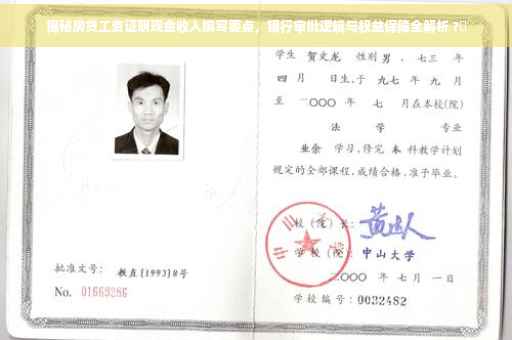 揭秘房贷工资证明现金收入填写要点，银行审批逻辑与权益保障全解析?
学生 贺文龙 性别 男，三 年
四 月 日生，于 九七 年 九 月
至 二〇〇〇 年 七 月在本校(院)
法 学 专业
业余 学习，修完 本 科教学计划
规定的全部课程，成绩合格，准予毕业。
校（院）长：
学校（院）：中山大学
批准文号：教直[1993]8号
二〇〇〇 年 七 月 一日
No. 01669286
学校编号：0032482